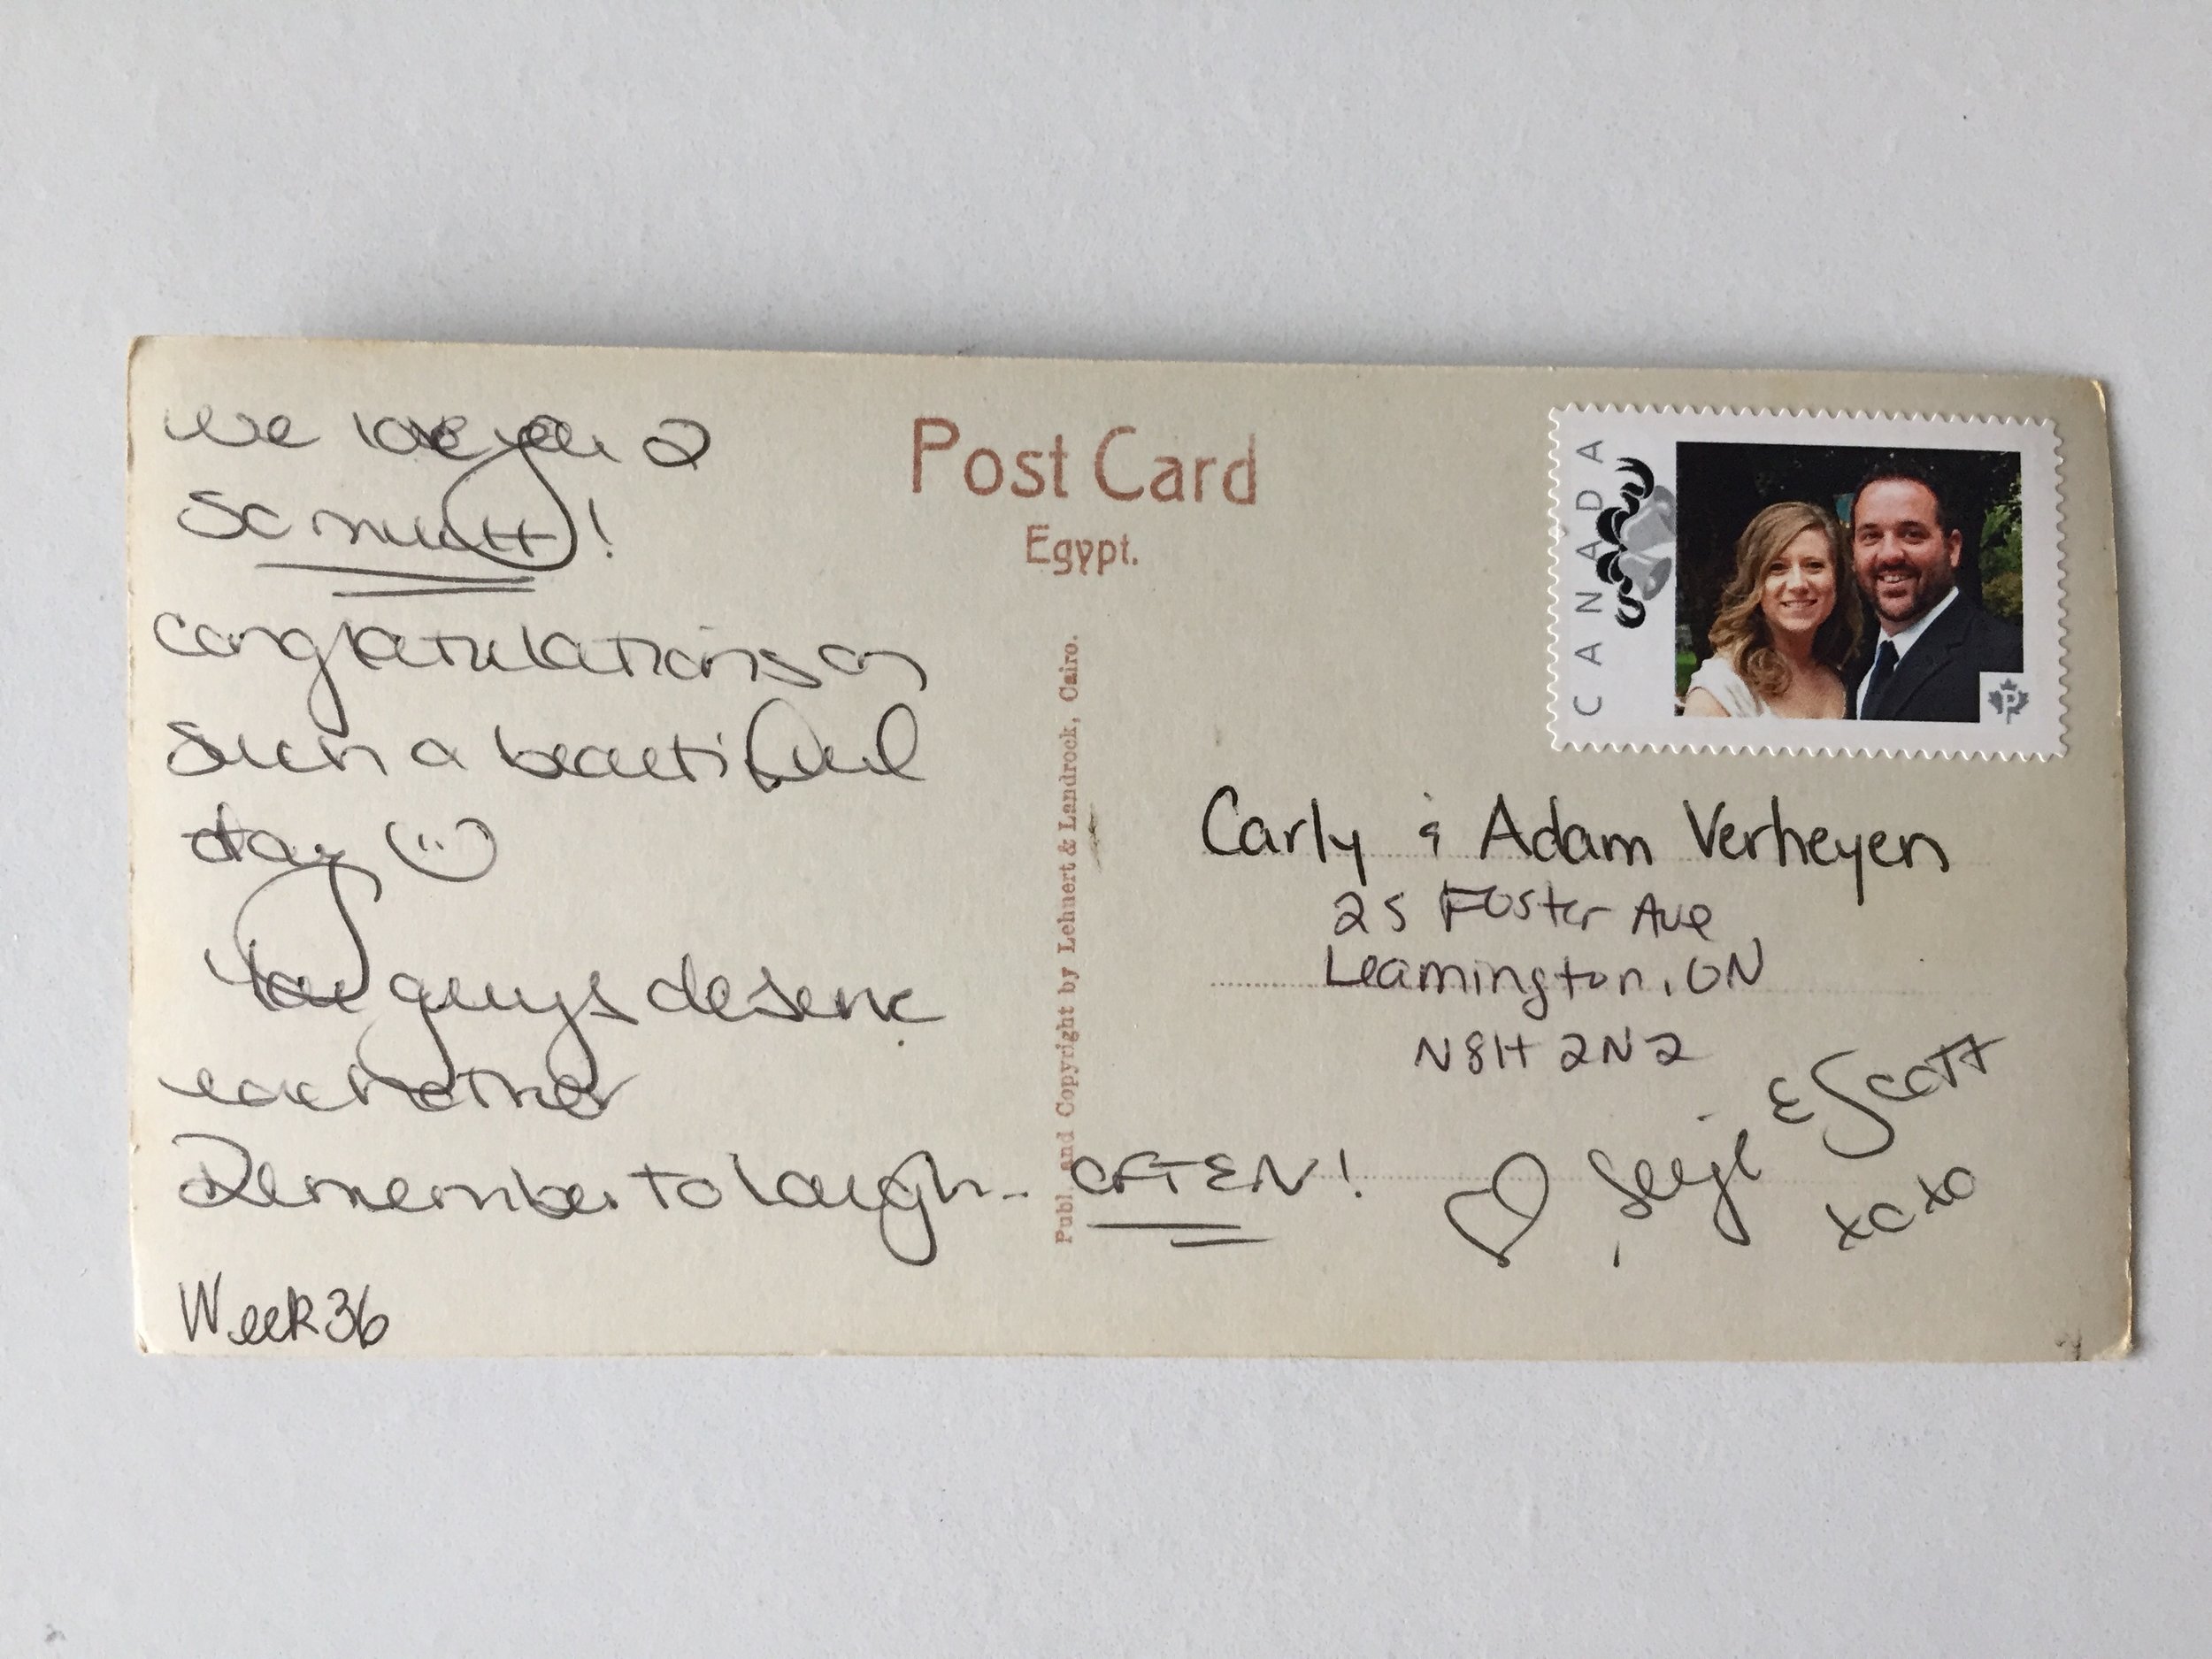 we love you 2
so much!
congratulations on
such a beautiful
day
You guys deserve
eachother
Remember to laugh - OFTEN!
Week 36
Post Card
Egypt.
Publ. and Copyright by Lehnert & Landrock, Cairo.
CANADA
P
Carly & Adam Verheyen
25 Foster Ave
Leamington, ON
N8H 2N2
& Scott
xoxo